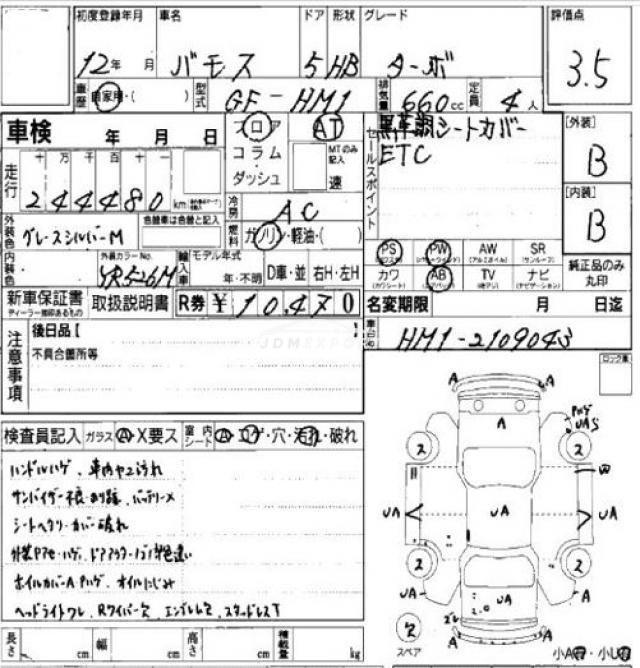 初度登録年月 車名 ドア 形状 グレード 評価点
12年 月 バモス 5 HB ターボ 3.5
車歴 自家用・( ) 型式 GF-HM1 排気量 660cc 定員 4人
車検 年 月 日 フロア AT 黒革調シートカバー [外装]
コラム・ MTのみ記入 セールスポイント ETC B
ダッシュ 速
走行 十 万 千 百 十 一 [内装]
244480 km 冷房 AC B
外装色 グレースシルバーM 色替車は色替と記入 燃料 ガソリン・軽油・( )
PS PW AW SR
内装色 外装カラーNo. YR526M 輸入車 モデル年式 年・不明 D車・並 右H・左H
カワ AB TV ナビ 純正品のみ丸印
新車保証書 取扱説明書 R券 ¥10,470 名変期限 月 日迄
ディーラー捺印あるもの
注意事項 後日品【 車台No. HM1-2109043
不具合箇所等 ロック車
JDMEXPO
検査員記入 ガラス A・X要ス 室内シート A・コゲ・穴・汚れ・破れ
ハンドルハゲ、車内ヤニ汚れ
サンバイザー不良・あり跡、バッテリー×
シートヘタリ・カバー破れ
ホイルカバーA・Pハゲ オイルにじみ
ヘッドライトワレ、Rワイパー欠、エンブレム欠、スタッドレスT
A A
A
Pハゲ
UAS
2 2
W
UA UA UA
2 2
UA UA A
2
スペア A A
長さ cm 幅 cm 高さ cm 積載量 kg 小A・小U